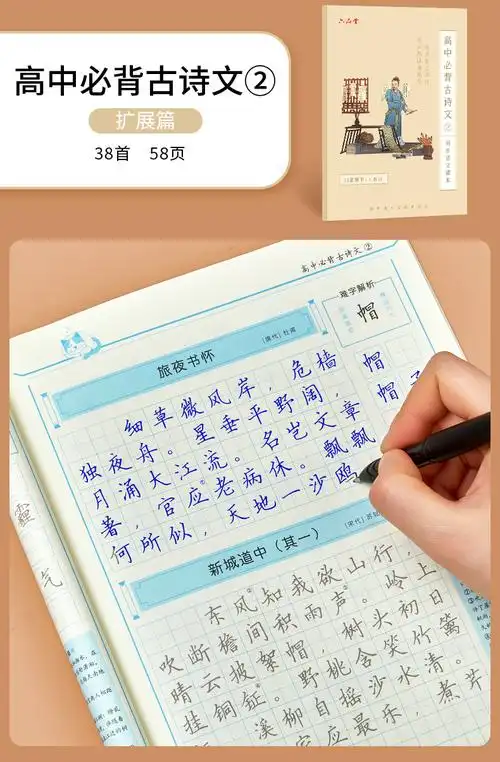 高中必背古诗文②
扩展篇
38首 58页
六品堂
高中必背古诗文②
高中必背古诗文②
难字解析
帽
旅夜书怀
(唐代) 杜甫
细草微风岸，危樯
独夜舟。星垂平野阔，
月涌大江流。名岂文章
著，官应老病休。飘飘
何所似，天地一沙鸥
帽
帽
新城道中（其一）
东风知我欲山行，
吹断檐间积雨声。岭上
晴云披絮帽，树头初日
挂铜钲。野桃含笑竹篱
溪柳自摇沙水清。
应最乐，煮芹
霾
气